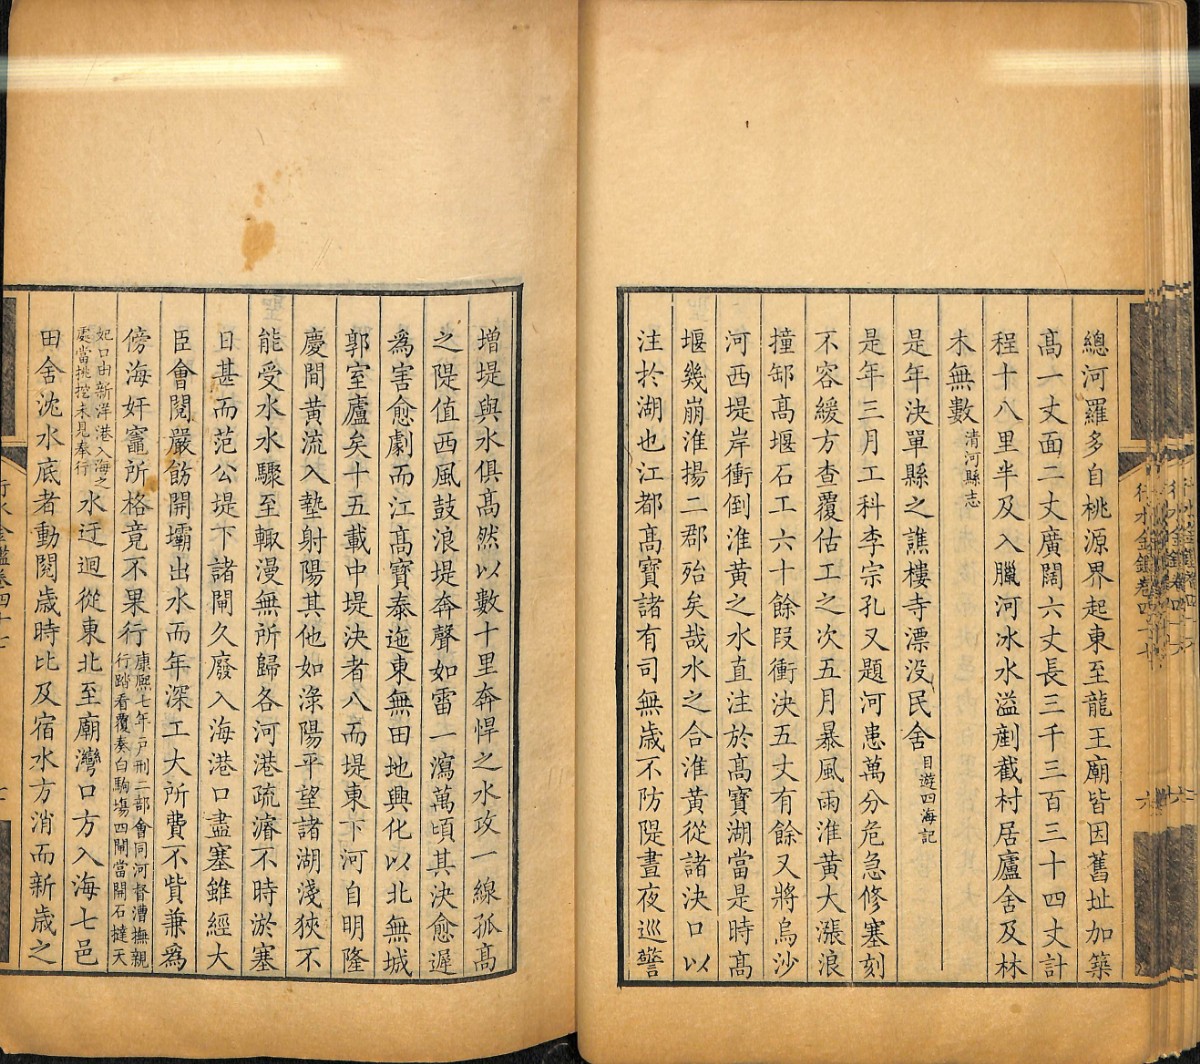 總河羅多自桃源界起東至龍王廟皆因舊址加築
高一丈面二丈廣闊六丈長三千三百三十四丈計
程十八里半及入臘河冰水溢剷截村居廬舍及林
木無數清河縣志
是年決單縣之譙樓寺漂没民舍目遊四海記
是年三月工科李宗孔又題河患萬分危急修塞刻
不容緩方查覆估工之次五月暴風雨淮黄大漲浪
撞卸高堰石工六十餘段衝決五丈有餘又將烏沙
河西堤岸衝倒淮黄之水直注於高寶湖當是時高
堰幾崩淮揚二郡殆矣哉水之合淮黄從諸決口以
注於湖也江都高寶諸有司無歲不防隄晝夜巡警
增堤與水俱高然以數十里奔悍之水攻一線孤高
之隄值西風鼓浪堤奔聲如雷一瀉萬頃其決愈遲
為害愈劇而江高寶泰迤東無田地興化以北無城
郭室廬矣十五載中堤決者八而堤東下河自明隆
慶間黄流入墊射陽其他如淥陽平望諸湖淺狹不
能受水水驟至輙漫無所歸各河港疏濬不時淤塞
日甚而范公堤下諸閘久廢入海港口盡塞雖經大
臣會閱嚴飭開壩出水而年深工大所費不貲兼為
傍海奸竈所格竟不果行康熙七年戸刑二部會同河督漕撫親
行踏看覆奏白駒塲四閘當開石䃮天
妃口由新洋港入海之
處當挑挖未見奉行水迂迴從東北至廟灣口方入海七邑
田舍沈水底者動閱歲時比及宿水方消而新歲之
行水金鑑卷四十七